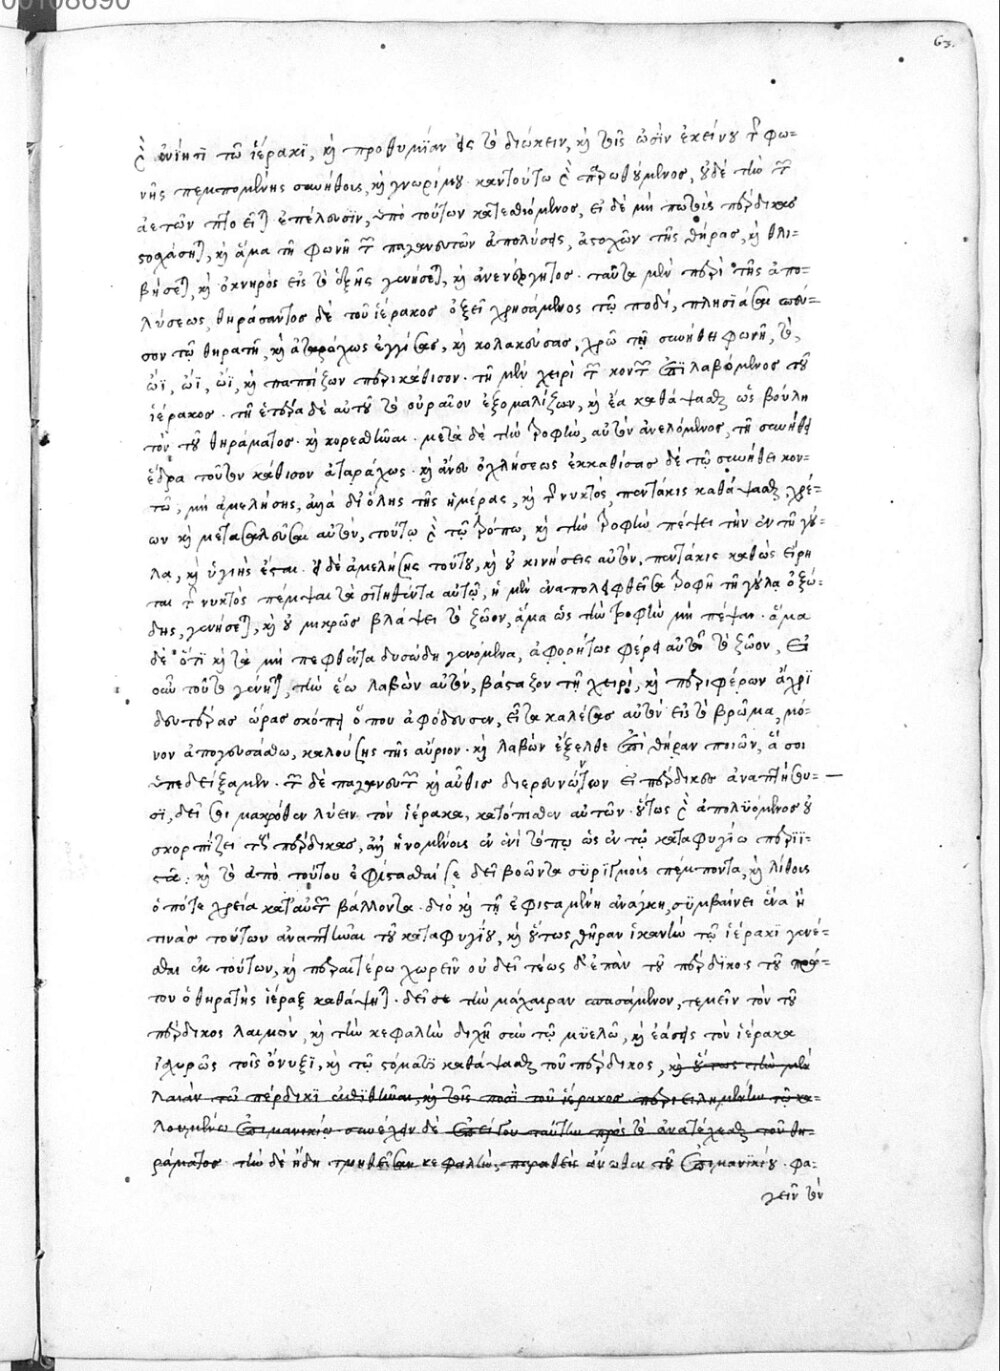 00108690
63.
ἀνίησι τῷ ἱέρακι, καὶ προθυμίαν εἰς τὸ διώκειν, καὶ τοῖς ὠσὶν ἐκείνου τῆς φω-
νῆς πεμπομένης συνήθους, καὶ γνωρίμου
ἀετῶν ἐπέλευσιν, ὑπὸ τούτων κατεσθιόμενος, εἰ δὲ μὴ πέρδικας
στοχάσηται, καὶ ἅμα τῇ φωνῇ τῶν ἀπολύσῃς, ἀστοχῶν τῆς θήρας, καὶ θλι-
βήσεται, καὶ ὀκνηρὸς εἰς τὸ ἑξῆς γενήσεται, καὶ ἀνενέργητος. ταῦτα μὲν περὶ τῆς ἀπο-
λύσεως, θηράσαντος δὲ τοῦ ἱέρακος ὀξεῖ χρησάμενος τῷ ποδί, πλησίασαι
τῷ θηρατῇ, καὶ ἀταράχως ἐγγίσας, καὶ κολακεύσας, χρῶ τῇ συνήθει φωνῇ, τὸ,
ὠϊ, ὠϊ, ὠϊ, καὶ παππίζων περικάθισον. τῇ μὲν χειρὶ ἐπιλαβόμενος τοῦ
ἱέρακος. τῇ ἑτέρᾳ δὲ αὐτοῦ τὸ οὐραῖον ἐξομαλίζων, καὶ ἔα καθάψασθαι ὡς βούλῃ
τὸν τοῦ θηράματος. καὶ κορεσθῆναι. μετὰ δὲ τὴν τροφὴν, αὐτὸν ἀνελόμενος, τῇ συνήθει
ἕδρα τοῦτον κάθισον ἀταράχως. καὶ ἄνευ ὀχλήσεως ἐκκαθίσας δὲ τῷ συνήθει κον-
τῷ, μὴ ἀμελήσῃς, ἀλλὰ δι' ὅλης τῆς ἡμέρας, καὶ τῆς νυκτὸς, πεντάκις καθάψασθαι χρέ-
ων καὶ μετασαλεῦσαι αὐτὸν, τούτῳ γὰρ τῷ τρόπῳ, καὶ τὴν τροφὴν πέψει τὴν ἐν τῇ γού-
λᾳ, καὶ ὑγιὴς ἔσται. εἰ δὲ ἀμελήσῃς τούτου, καὶ οὐ κινήσεις αὐτὸν, πεντάκις καθὼς εἴρη
ται τῆς νυκτὸς πέμψαι τὰ σιτηθέντα αὐτῷ, ἡ μὲν ἐναπολειφθεῖσα τροφὴ τῇ γούλᾳ ὀξώ-
δης, γενήσεται, καὶ οὐ μικρῶς βλάψει τὸ ζῶον, ἅμα ὡς τὴν τροφὴν μὴ πέψαν. ἅμα
δὲ ὅτι καὶ τὰ μὴ πεφθέντα δυσώδη γενόμενα, ἀφορήτως φέρει αὐτὰ τὸ ζῶον, εἰ
οὖν τοῦτο γένηται, τὴν ἕω λαβὼν αὐτὸν, βάσταξον τῇ χειρὶ, καὶ περιφέρων ἄχρι
δευτέρας ὥρας σκόπει ὅπου ἀφόδευσεν, εἶτα καλέσας αὐτὸν εἰς τὸ βρῶμα, μό-
νον ἀπογευσάσθω, καλούσης τῆς αὔριον. καὶ λαβὼν ἔξελθε ἐπὶ θήραν ποιῶν, ἅ σοι
ὑπεδείξαμεν. τῶν δὲ καὶ αὖθις διερευνώντων εἰ πέρδικες ἀναπτήσου-
σι, δεῖ σοι μακρόθεν λύειν τὸν ἱέρακα, κατόπισθεν αὐτῶν. οὕτως γὰρ ἀπολυόμενος οὐ
σκορπίζει τοὺς πέρδικας, ἀλλ' ἡνωμένους ἐν ἑνὶ τόπῳ ὡς ἐν τῷ καταφυγίῳ
καὶ τὸ ἀπὸ τούτου ἐφίστασθαί σε δεῖ βοῶντα συρισμοὺς πέμποντα, καὶ λίθους
ὁπότε χρεία κατ' αὐτῶν βάλλοντα. διὸ καὶ τῇ ἐφισταμένῃ ἀνάγκῃ, συμβαίνει ἕνα ἢ
τινὰς τούτων ἀναπτῆναι τοῦ καταφυγίου, καὶ οὕτως θήραν ἱκανὴν τῷ ἱέρακι γενέ-
σθαι ἐκ τούτων, καὶ περαιτέρω χωρεῖν οὐ δεῖ τέως δ' ἐπὰν τοῦ πέρδικος τοῦ πρώ-
του ὁ θηρατὴς ἱέραξ καθάψηται. δεῖ σε τὴν μάχαιραν σπασάμενον, τεμεῖν τὸν τοῦ
πέρδικος λαιμὸν, καὶ τὴν κεφαλὴν διχῆ σὺν τῷ μυελῷ, καὶ ἐάσῃς τὸν ἱέρακα
ἰσχυρῶς τοῖς ὄνυξι, καὶ τῷ στόματι καθάψασθαι τοῦ πέρδικος, καὶ οὕτως τὴν μὲν
λαιὰν τῷ πέρδικι ἐπιθεῖναι, καὶ τοῖς ποσὶ τοῦ ἱέρακος περιειλημμένην τῷ κα-
λουμένῳ ἐπιμανικίῳ. συνέλκειν δὲ ἐπείγου ταύτην πρὸς τὸ ἀνατέλλεσθαι τοῦ θη-
ράματος τὴν δὲ ἤδη τμηθεῖσαν κεφαλὴν, παραθεὶς ἄνωθεν τοῦ ἐπιμανικίου. φα-
γεῖν τὸν